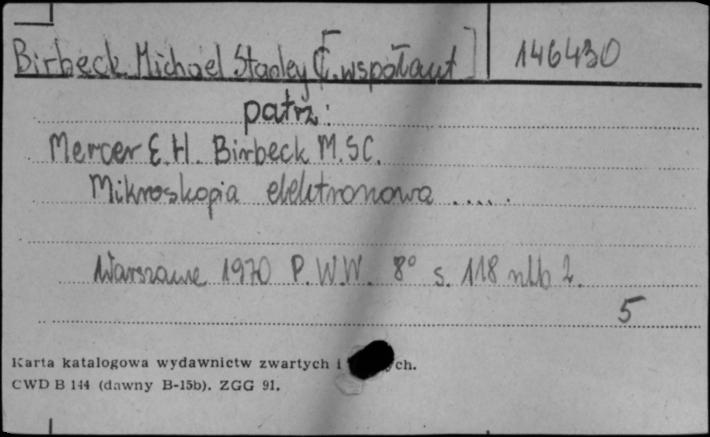 Birbeck Michael Stanley C. [współaut] 146430
patrz:
Mercer E.H. Birbeck M.SC.
Mikroskopia elektronowa .....
Warszawa 1970 P.W.W. 8° s. 118 nlb 2.
5
Karta katalogowa wydawnictw zwartych i ch.
CWD B 144 (dawny B-15b). ZGG 91.